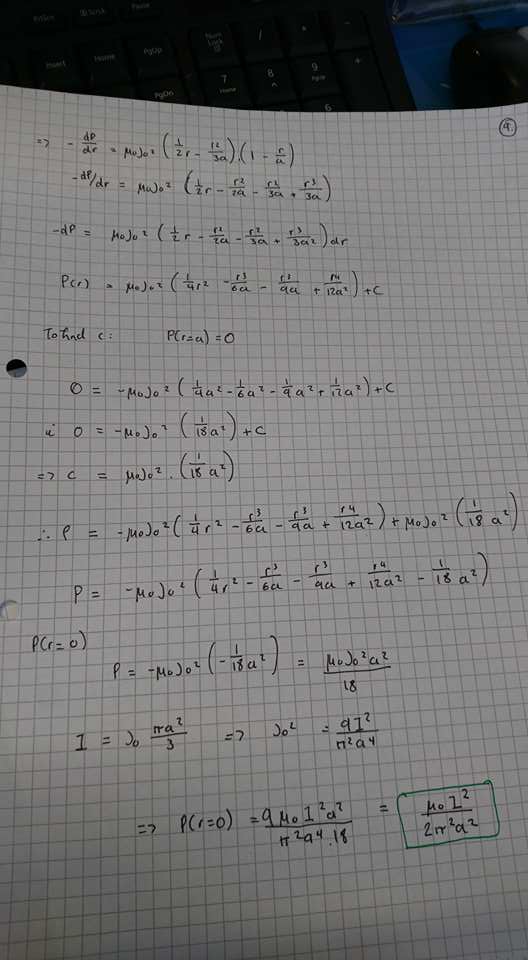 PrtScn
Insert Home PgUp
PgDn
Num Lock / *
7 Home 8 9 PgUp
6
9.
=> - dP/dr = μ₀J₀² (1/2 r - r²/3a).(1 - r/a)
-dP/dr = μ₀J₀² (1/2 r - r²/2a - r²/3a + r³/3a)
-dP = μ₀J₀² (1/2 r - r²/2a - r²/3a + r³/3a²) dr
P(r) = μ₀J₀² (1/4 r² - r³/6a - r³/9a + r⁴/12a²) + C
To find c: P(r=a) = 0
0 = -μ₀J₀² (1/4 a² - 1/6 a² - 1/9 a² + 1/12 a²) + C
0 = -μ₀J₀² (1/18 a²) + C
=> C = μ₀J₀² . (1/18 a²)
∴ P = -μ₀J₀² (1/4 r² - r³/6a - r³/9a + r⁴/12a²) + μ₀J₀² (1/18 a²)
P = -μ₀J₀² (1/4 r² - r³/6a - r³/9a + r⁴/12a² - 1/18 a²)
P(r=0)
P = -μ₀J₀² (-1/18 a²) = μ₀J₀²a²/18
I = J₀ πa²/3 => J₀² = 9I²/π²a⁴
=> P(r=0) = 9μ₀I²a²/π²a⁴.18 = μ₀I²/2π²a²